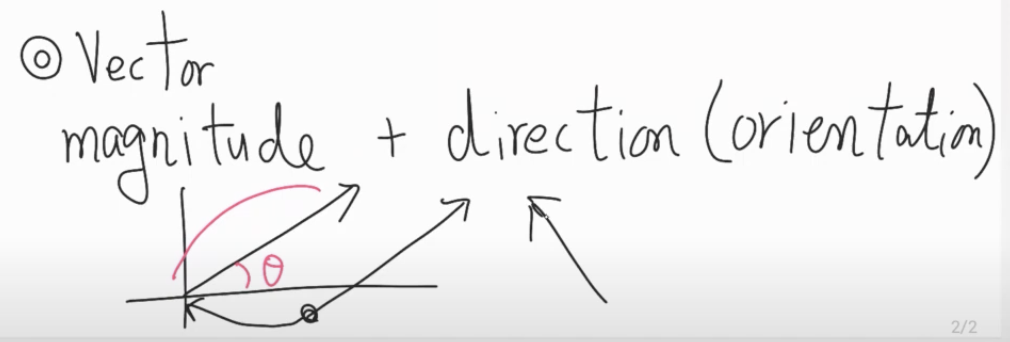 ◎ Vector
magnitude + direction (orientation)
θ
2/2